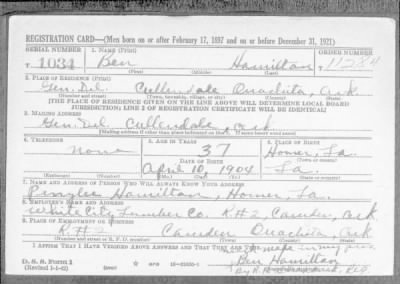 REGISTRATION CARD—(Men born on or after February 17, 1897 and on or before December 31, 1921)
SERIAL NUMBER 1. NAME (Print) ORDER NUMBER
T 1034 Ben Hamilton 11284
(First) (Middle) (Last)
2. PLACE OF RESIDENCE (Print)
Gen. Del. Cullendale Ouachita, Ark
(Number and street) (Town, township, village, or city) (County) (State)
[THE PLACE OF RESIDENCE GIVEN ON THE LINE ABOVE WILL DETERMINE LOCAL BOARD
JURISDICTION; LINE 2 OF REGISTRATION CERTIFICATE WILL BE IDENTICAL]
3. MAILING ADDRESS
Gen. Del. Cullendale, Ark
[Mailing address if other than place indicated on line 2. If same insert word same]
4. TELEPHONE 5. AGE IN YEARS 6. PLACE OF BIRTH
None 37 Homer, La.
DATE OF BIRTH (Town or county)
April 10, 1904 La.
(Exchange) (Number) (Mo.) (Day) (Yr.) (State or country)
7. NAME AND ADDRESS OF PERSON WHO WILL ALWAYS KNOW YOUR ADDRESS
Hamilton, Homer, La.
8. EMPLOYER'S NAME AND ADDRESS
White City Lumber Co. R#2, Camden, Ark
9. PLACE OF EMPLOYMENT OR BUSINESS
R#2 Camden Ouachita, Ark
(Number and street or R. F. D. number) (Town) (County) (State)
I AFFIRM THAT I HAVE VERIFIED ABOVE ANSWERS AND THAT THEY ARE TRUE.
D. S. S. Form 1 Ben Hamilton
(Revised 1-1-42) (over)